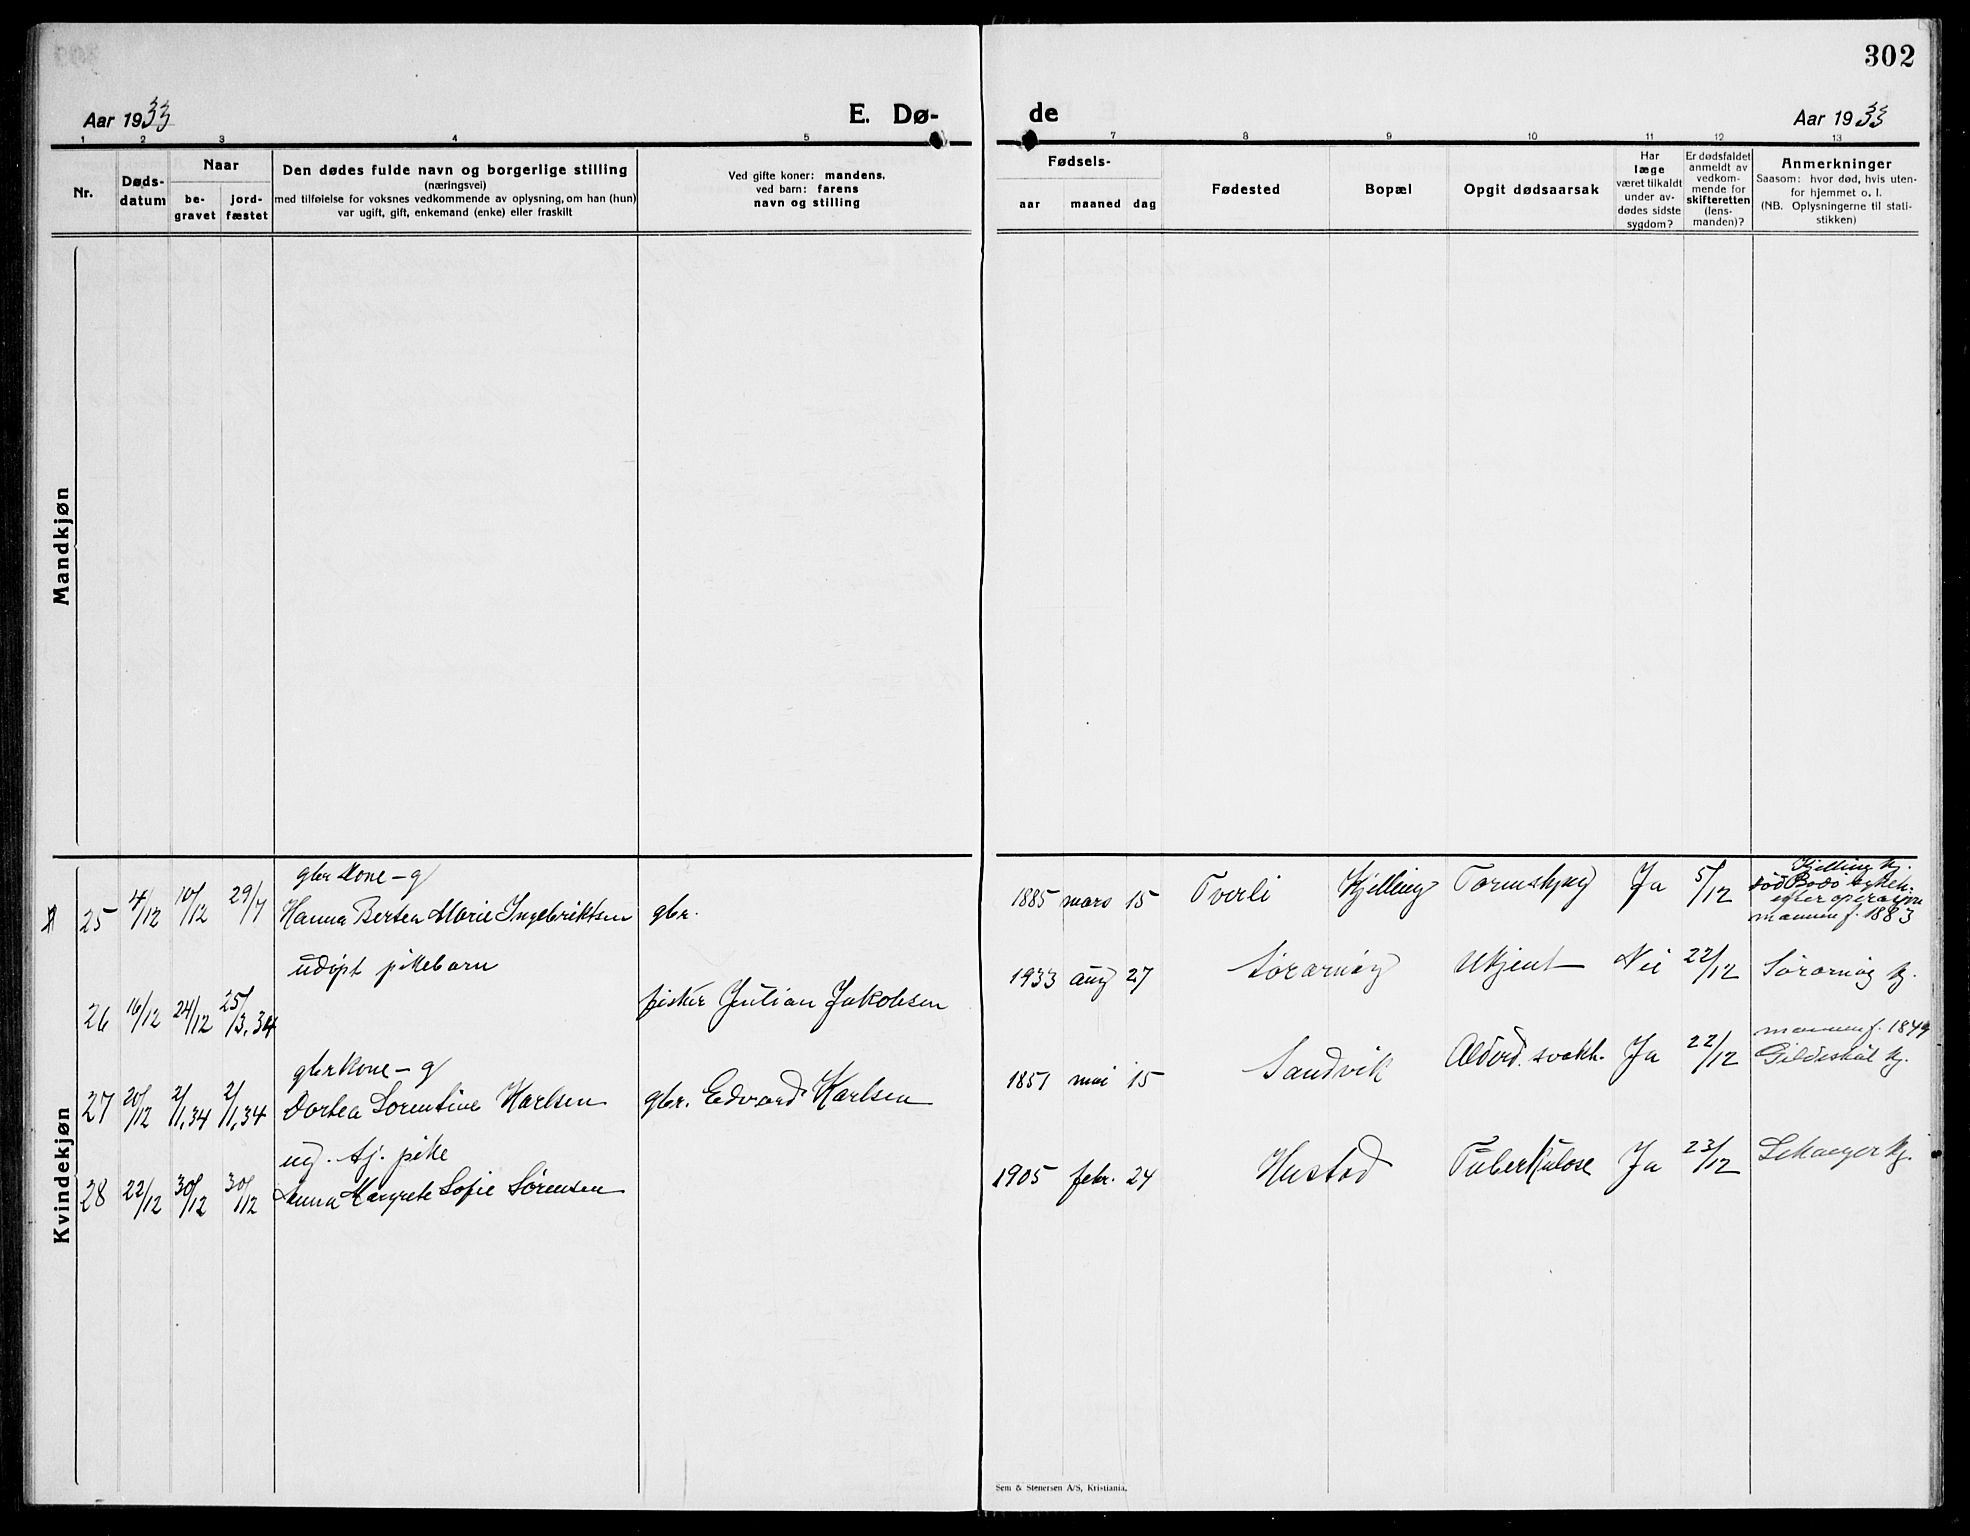 302
Aar 1933
E. Dø-
de
Aar 1933
1 2 3 4 5 7 8 9 10 11 12 13
Nr.
Døds-
datum
Naar
be-
gravet
jord-
fæstet
Den dødes fulde navn og borgerlige stilling
(næringsvei)
med tilføielse for voksnes vedkommende av oplysning, om han (hun)
var ugift, gift, enkemand (enke) eller fraskilt
Ved gifte koner: mandens,
ved barn: farens
navn og stilling
Fødsels-
aar maaned dag
Fødested
Bopæl
Opgit dødsaarsak
Har
læge
været tilkaldt
under av-
dødes sidste
sygdom?
Er dødsfaldet
anmeldt av
vedkom-
mende for
skifteretten
(lens-
manden)?
Anmerkninger
Saasom: hvor død, hvis uten-
for hjemmet o. l.
(NB. Oplysningerne til stati-
stikken)
Mandkjøn
Kvindekjøn
gbr kone - g
25 4/12 10/12 29/7 Hanna Bertea Marie Ingebriktsen gbr. 1885 mars 15 Tverli Kjelling Ja 5/12
Kjelling kj.
død Bodø
efter
mannen f. 1883
udøpt pikebarn
26 16/12 24/12 25/3.34 fisker Julian Jakobsen 1933 aug 27 Sørarnøy Ukjent Nei 22/12 Sørarnøy kj.
gbrkone - g
27 20/12 2/1.34 2/1.34 Dortea Sorentine Karlsen gbr. Edvard Karlsen 1851 mai 15 Sandvik Alderd. svakh. Ja 22/12
mannen f. 1849
Gildeskål kj.
ug. tj. pike
28 22/12 30/12 30/12 Anna Margrete Sofie Sørensen 1905 febr. 24 Hustad Tuberkulose Ja 23/12 kj.
Sem & Stenersen A/S, Kristiania.